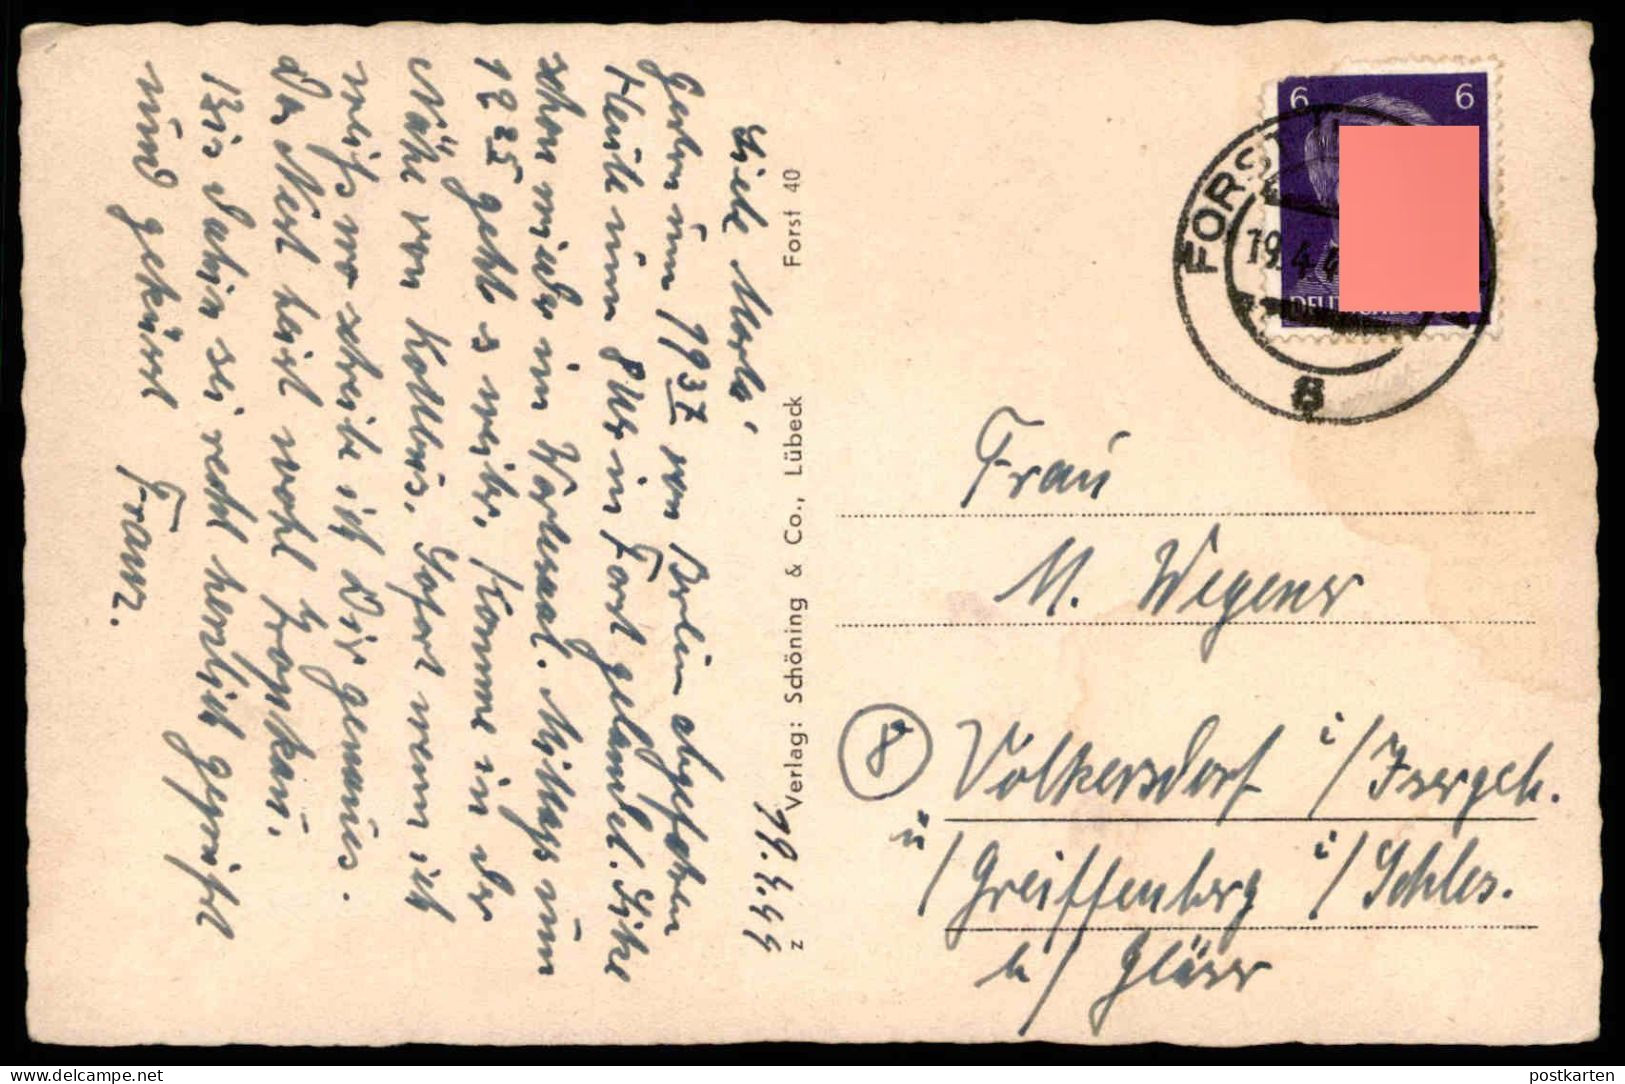 19.4.44
Liebe Marta!
Gestern um 19³⁷ von Berlin abgefahren
Heute um 8 Uhr in Forst gelandet. Sitze
schon wieder im Wartesaal. Mittags um
12²⁵ geht's weiter. Komme in der
Nähe von Kottbus. Sofort wenn ich
weiß wo schreibe ich Dir genaues.
Das Nest heist wohl
Bis dahin sei recht herzlich gegrüßt
und geküsst Franz.
z Verlag: Schöning & Co., Lübeck Forst 40
6 6
FORST
19.4.4
a
Frau
M. Wegener
8a Volkersdorf i/Isergeb.
ü/Greiffenberg i/Schles.
b/Gläser
postkarten